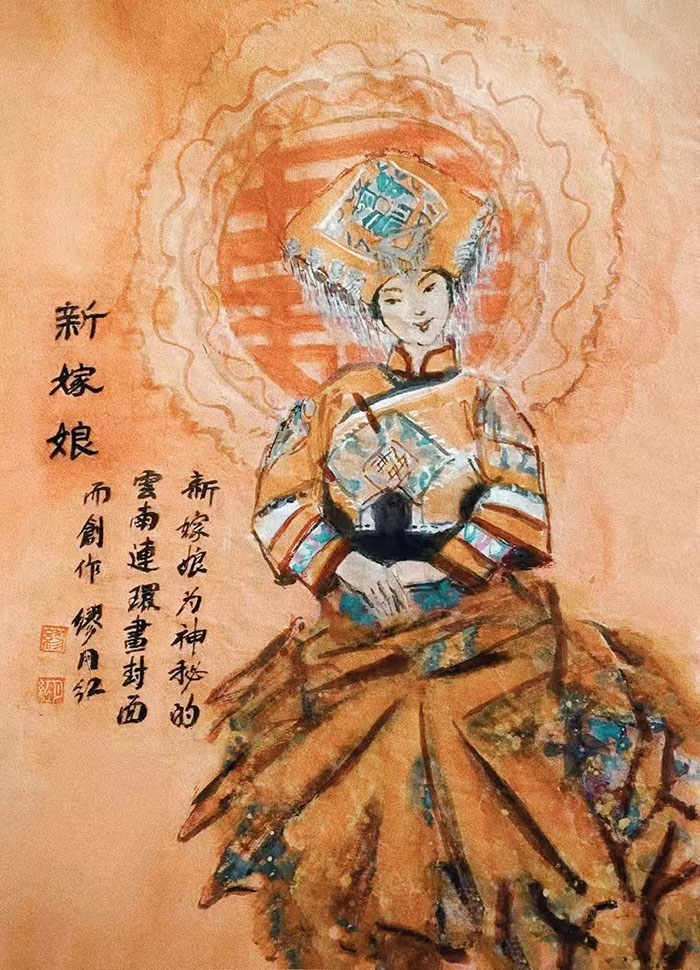 新嫁娘
新嫁娘为神秘的
雲南連環畫封面
而創作 繆月红